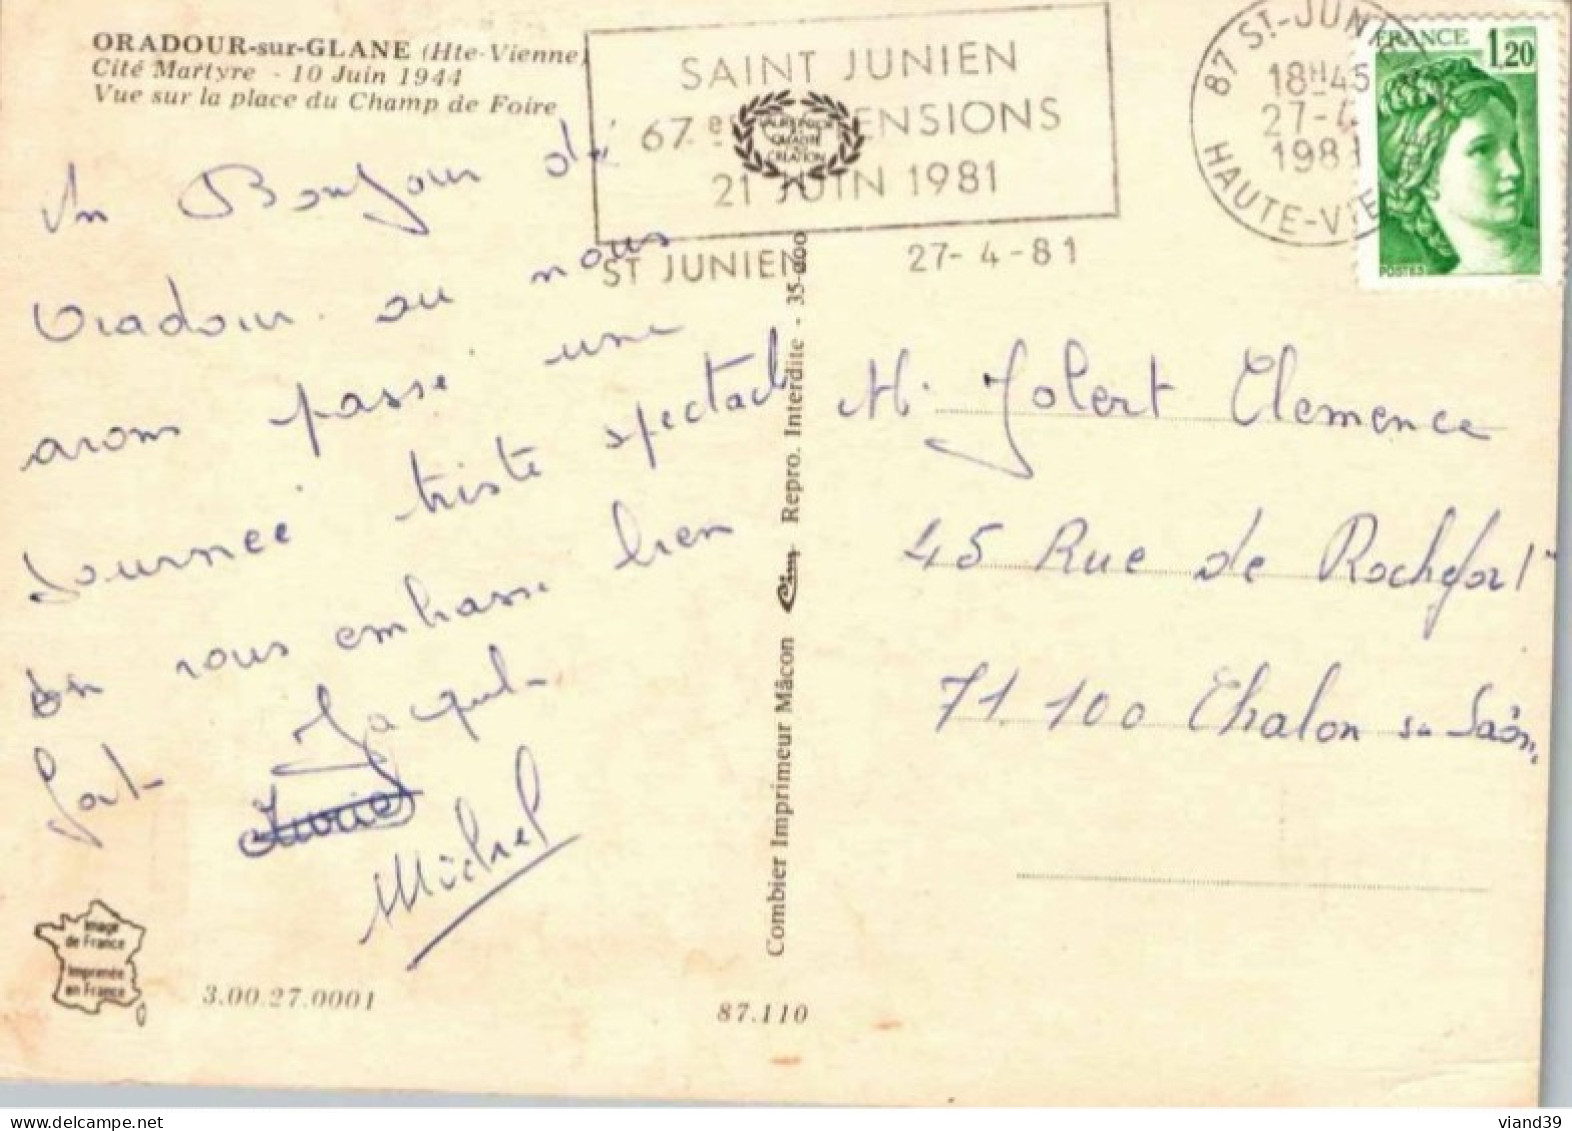 ORADOUR-sur-GLANE (Hte-Vienne)
Cité Martyre - 10 Juin 1944
Vue sur la place du Champ de Foire
SAINT JUNIEN
67e ENSIONS
21 JUIN 1981
ST JUNIEN 27-4-81
87 ST-JUNIE
18H45
27-4
1981
HAUTE-VIE
FRANCE 1,20
POSTES
un Bonjour de
Oradour ou nous
avons passé une
Journée triste spectacl
on vous embrasse bien
fort Jacquel
Michel
M. Jolert Clemence
45 Rue de Rochefort
71.100 Chalon su Saône
Combier Imprimeur Mâcon Cim Repro. Interdite - 35-400
Image
de France
Imprimée
en France
3.00.27.0001
87.110
www.delcampe.net
viand39